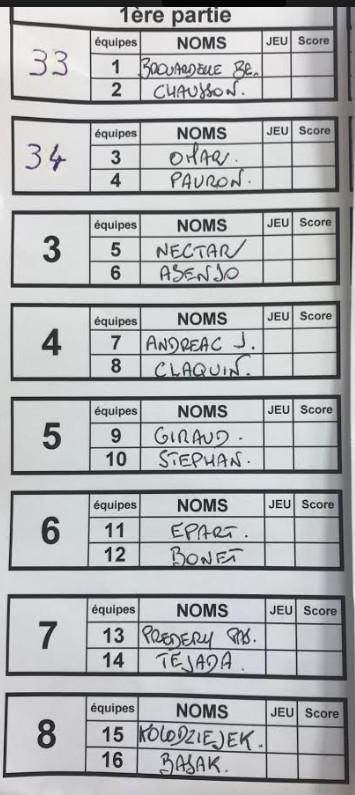 1ère partie
équipes NOMS JEU Score
33
1 BROUARDELLE BE.
2 CHAUSSON.
équipes NOMS JEU Score
34
3 OMAR.
4 PAURON.
équipes NOMS JEU Score
3
5 NECTAR
6 ASENJO
équipes NOMS JEU Score
4
7 ANDREAC J.
8 CLAQUIN.
équipes NOMS JEU Score
5
9 GIRAUD.
10 STEPHAN.
équipes NOMS JEU Score
6
11 EPART.
12 BONET
équipes NOMS JEU Score
7
13 PREDERY
14 TEJADA
équipes NOMS JEU Score
8
15 KOLODZIEJEK.
16 BASAK.